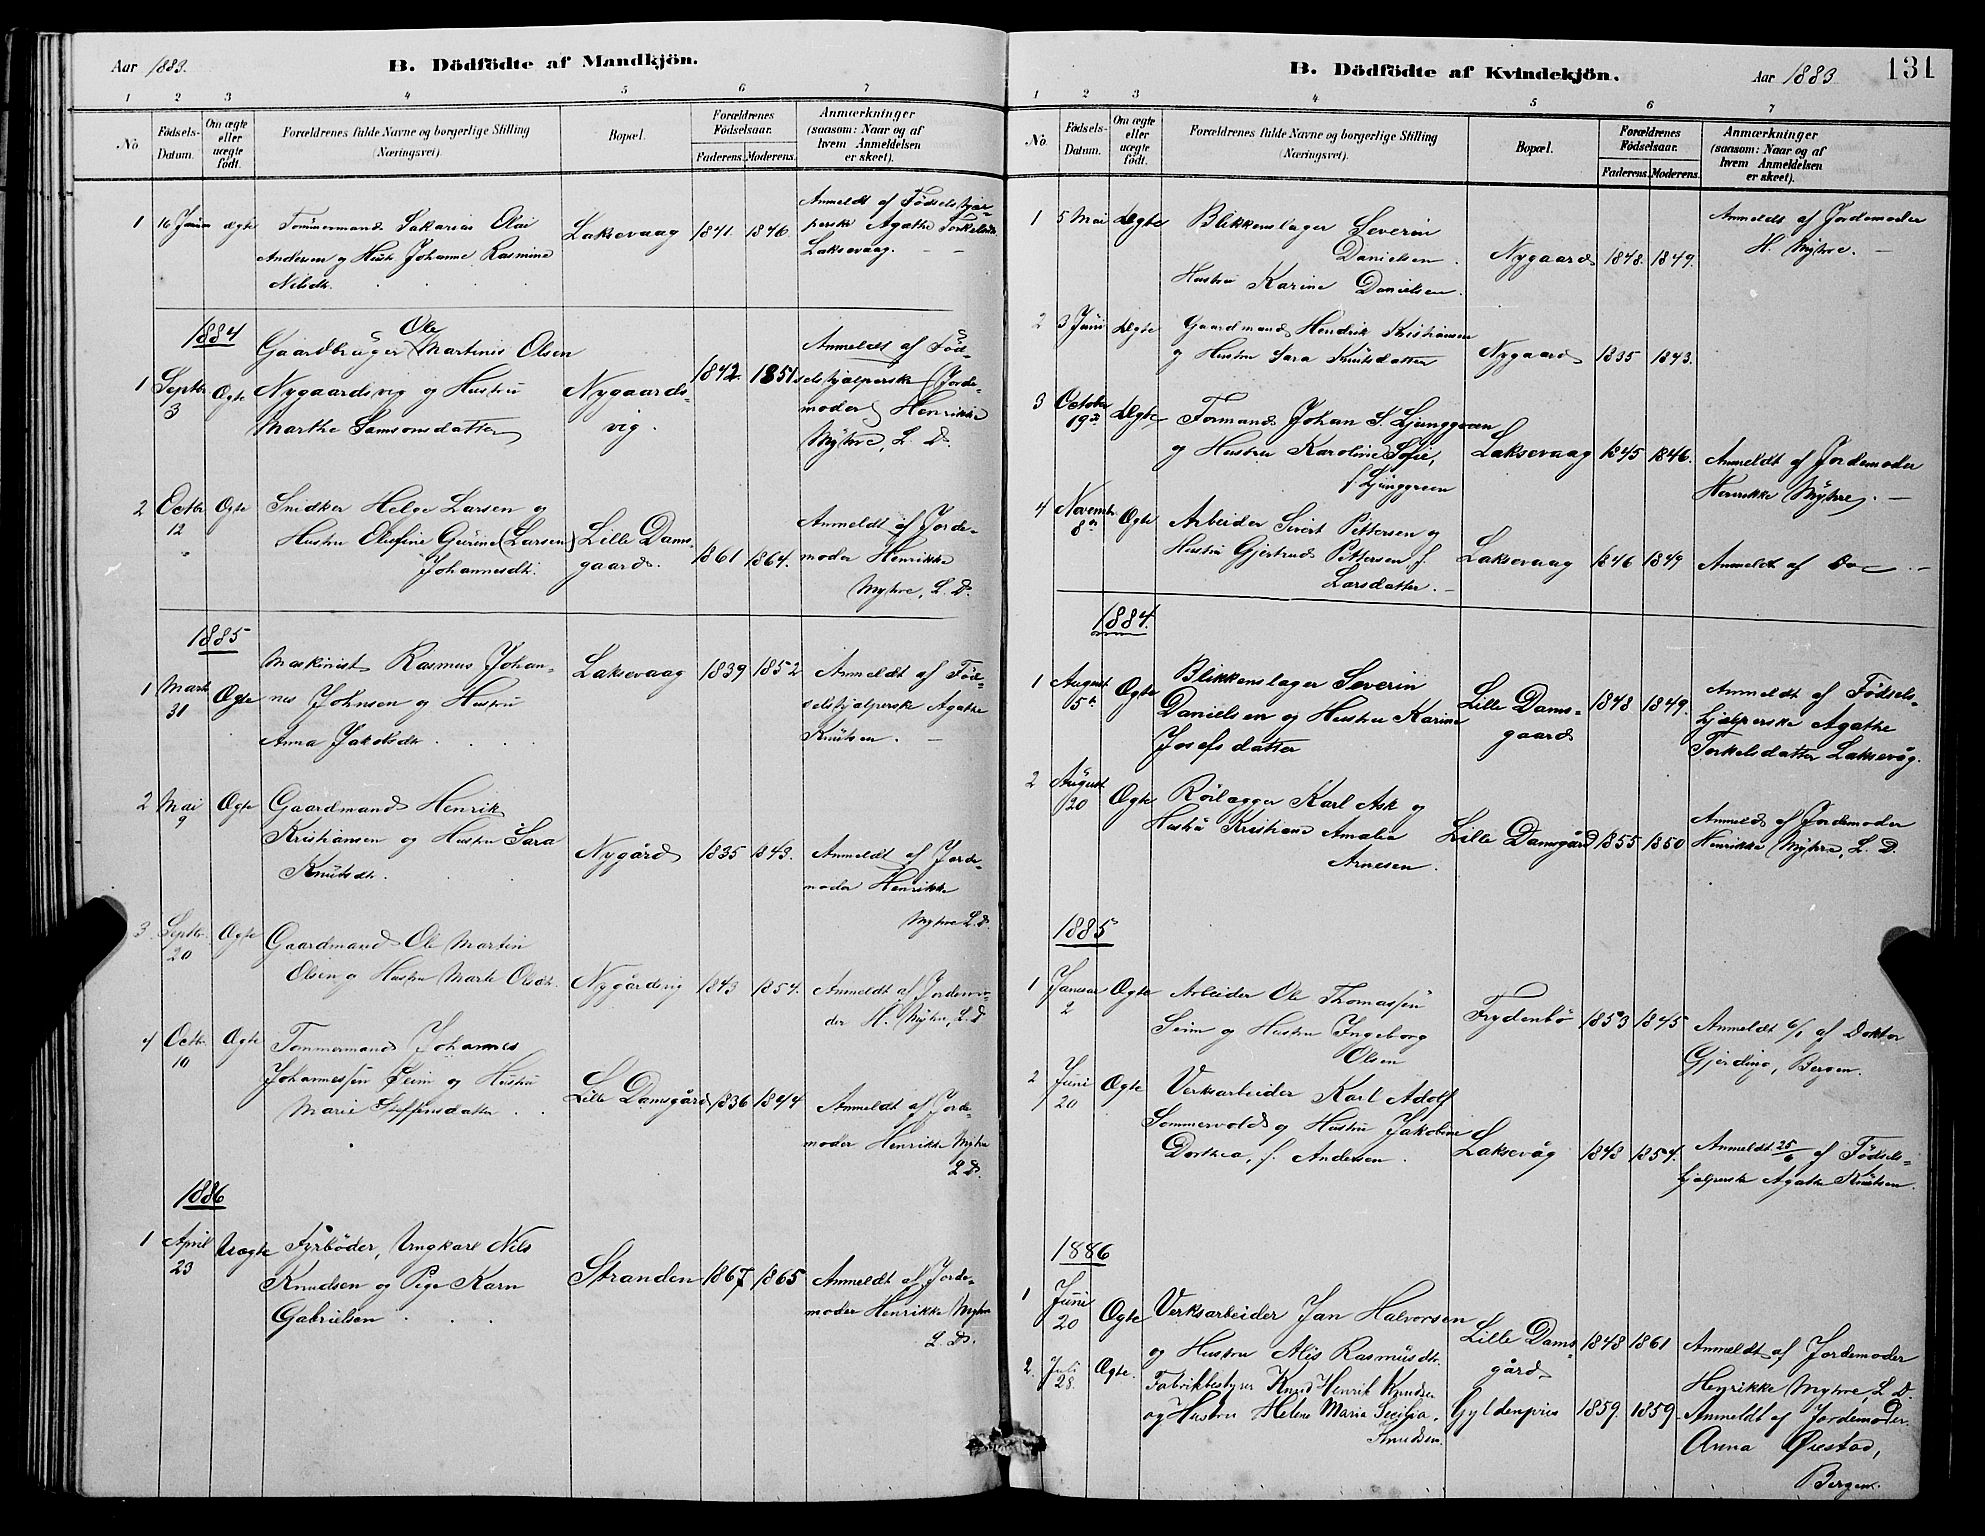 Aar 1883.
B. Dödfödte af Mandkjön.
1 2 3 4 5 6 7
No
Fødsels-Datum.
Om ægte eller uægte født.
Forældrenes fulde Navne og borgerlige Stilling (Næringsvei).
Bopæl.
Forældrenes Fødselsaar.
Faderens. Moderens.
Anmærkninger (saasom: Naar og af hvem Anmeldelsen er skeet).
1 16 Ægte Tømmermand Sakarias Olai Laksevaag 1841. 1846 Anmeldt af Fødselshjæl-
Andersen og Hustr Johanne Rasmine perske Agathe Torkelsdtr
Nilsdtr. Laksevaag. —
1884
Gaardbruger Ole Martinus Olsen 1842. 1851 Anmeldt af Fød-
1 Septbr 3 Ægte Nygaardsvig og Hustru Nygaards- selshjælperske (Jorde-
Marthe Samsonsdatter vig. moder) Henrikke
Myhre, L. D.
2 Octbr 12 Ægte Snidker Helge Larsen og Anmeldt af Jorde-
Hustru Olufine Gurine (Larsen) Lille Dams- 1861 1864. moder Henrikke
Johannesdtr. gaard. Myhre, L. D.
1885
Maskinist Rasmus Johan- Laksevaag 1839 1852 Anmeldt af Fød-
1 Marts 31 Ægte nes Johnsen og Hustru selshjælperske Agathe
Anna Jakobsdtr. Knutsen. —
2 Mai 9 Ægte Gaardmand Henrik
Kristiansen og Hustru Sara Nygård 1835 1843. Anmeldt af Jorde-
Knutsdtr. moder Henrikke
Myhre L. D.
3 Septbr. 20 Ægte Gaardmand Ole Martin
Olsen og Hustru Marte Olsdtr. Nygårdsvig 1843 1854. Anmeldt af Jordemo-
der H. Myhre, L. D
4 Octbr. 10 Ægte Tømmermand Johannes
Johannessen Seim og Hustru Lille Damsgård 1836 1844 Anmeldt af Jorde-
Marie Steffensdatter. moder Henrikke Myhre
L. D.
1886
1 April 23 Uægte Fyrbøder, Ungkarl Nils
Knudsen og Pige Karn Stranden 1867 1865 Anmeldt af Jorde-
Gabrielsen moder Henrikke Myhre
L. D.
B. Dödfödte af Kvindekjön.
Aar 1883.
131
1 2 3 4 5 6 7
No.
Fødsels-Datum.
Om ægte eller uægte født.
Forældrenes fulde Navne og borgerlige Stilling (Næringsvei).
Bopæl.
Forældrenes Fødselsaar.
Faderens. Moderens.
Anmærkninger (saasom: Naar og af hvem Anmeldelsen er skeet).
1 5 Mai Ægte Blikkenslager Severin Anmeldt af Jordemoder
Danielsen. Nygaard 1848. 1849. H. Myhre. —
Hustru Karine Danielsen.
2 3 Juni Ægte Gaardmand Hendrik Kristiansen
og Hustru Sara Knutsdatter Nygaard 1835 1843.
3 October 19de Ægte Formand Johan S. Ljunggreen
og Hustru Karoline Sofie, Laksevaag 1845 1846. Anmeldt af Jordemoder
f Ljunggreen Henrikke Myhre. —
4 Novembr. 8de Ægte Arbeider Sivert Pettersen og
Hustru Gjertrud Pettersen f. Laksevaag 1846 1849 Anmeldt af Do —
Larsdatter. —
1884.
1 August 5te Ægte Blikkenslager Severin Lille Dams- 1848 1849. Anmeldt af Fødsels-
Danielsen og Hustru Karine gaard hjælperske Agathe
Josefsdatter Torkelsdatter Laksevåg.
2 August 20 Ægte Rørlægger Karl Ask og
Hustru Kristiane Amalia Lille Damsgård 1855 1850 Anmeldt af Jordemoder
Arnesen. Henrikke Myhre, L. D.
1885
1 Januar 2 Ægte Arbeider Ole Thomassen Frydenbø 1853 1845 Anmeldt 6/1 af Doktor
Seim og Hustru Ingeborg Gjerding, Bergen.
Olsen
2 Juni 20 Ægte Verksarbeider Karl Adolf
Sommervold og Hustru Jakobine Laksevåg 1843 1854. Anmeldt 25/6 af Fødsels-
Dorthea, f. Andersen. hjælperske Agathe Knutsen.
1886
1 Juni 20 Ægte Verksarbeider Jan Halvorsen Lille Dams- 1848 1861 Anmeldt af Jordemoder
og Hustru Alis Rasmusdtr. gård Henrikke Myhre, L. D.
2. Juli 28. Ægte. Fabrikbestyrer Knud Henrik Knudsen
og Hustru Helene Maria Secilia. Gyldenpris 1859. 1859. Anmeldt af Jordemoder.
Knudsen. Anna Øvestad,
Bergen.